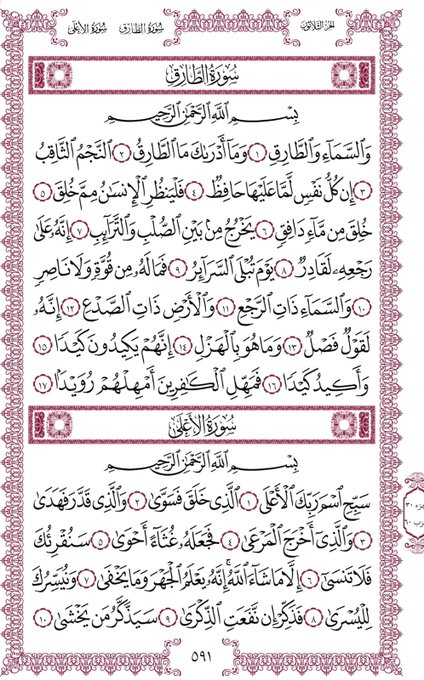 الجزء الثلاثون
سورة الطارق
سورة الأعلى
سُورَةُ الطَّارِقِ
بِسْمِ اللَّهِ الرَّحْمَٰنِ الرَّحِيمِ
وَالسَّمَاءِ وَالطَّارِقِ ١ وَمَا أَدْرَىٰكَ مَا الطَّارِقُ ٢ النَّجْمُ الثَّاقِبُ
٣ إِن كُلُّ نَفْسٍ لَّمَّا عَلَيْهَا حَافِظٌ ٤ فَلْيَنظُرِ الْإِنسَٰنُ مِمَّ خُلِقَ ٥
خُلِقَ مِن مَّاءٍ دَافِقٍ ٦ يَخْرُجُ مِن بَيْنِ الصُّلْبِ وَالتَّرَائِبِ ٧ إِنَّهُ عَلَىٰ
رَجْعِهِ لَقَادِرٌ ٨ يَوْمَ تُبْلَى السَّرَائِرُ ٩ فَمَا لَهُ مِن قُوَّةٍ وَلَا نَاصِرٍ
١٠ وَالسَّمَاءِ ذَاتِ الرَّجْعِ ١١ وَالْأَرْضِ ذَاتِ الصَّدْعِ ١٢ إِنَّهُ
لَقَوْلٌ فَصْلٌ ١٣ وَمَا هُوَ بِالْهَزْلِ ١٤ إِنَّهُمْ يَكِيدُونَ كَيْدًا ١٥
وَأَكِيدُ كَيْدًا ١٦ فَمَهِّلِ الْكَٰفِرِينَ أَمْهِلْهُمْ رُوَيْدًا ١٧
سُورَةُ الْأَعْلَىٰ
بِسْمِ اللَّهِ الرَّحْمَٰنِ الرَّحِيمِ
سَبِّحِ اسْمَ رَبِّكَ الْأَعْلَى ١ الَّذِي خَلَقَ فَسَوَّىٰ ٢ وَالَّذِي قَدَّرَ فَهَدَىٰ
٣ وَالَّذِي أَخْرَجَ الْمَرْعَىٰ ٤ فَجَعَلَهُ غُثَاءً أَحْوَىٰ ٥ سَنُقْرِئُكَ
فَلَا تَنسَىٰ ٦ إِلَّا مَا شَاءَ اللَّهُ إِنَّهُ يَعْلَمُ الْجَهْرَ وَمَا يَخْفَىٰ ٧ وَنُيَسِّرُكَ
لِلْيُسْرَىٰ ٨ فَذَكِّرْ إِن نَّفَعَتِ الذِّكْرَىٰ ٩ سَيَذَّكَّرُ مَن يَخْشَىٰ ١٠
٥٩١